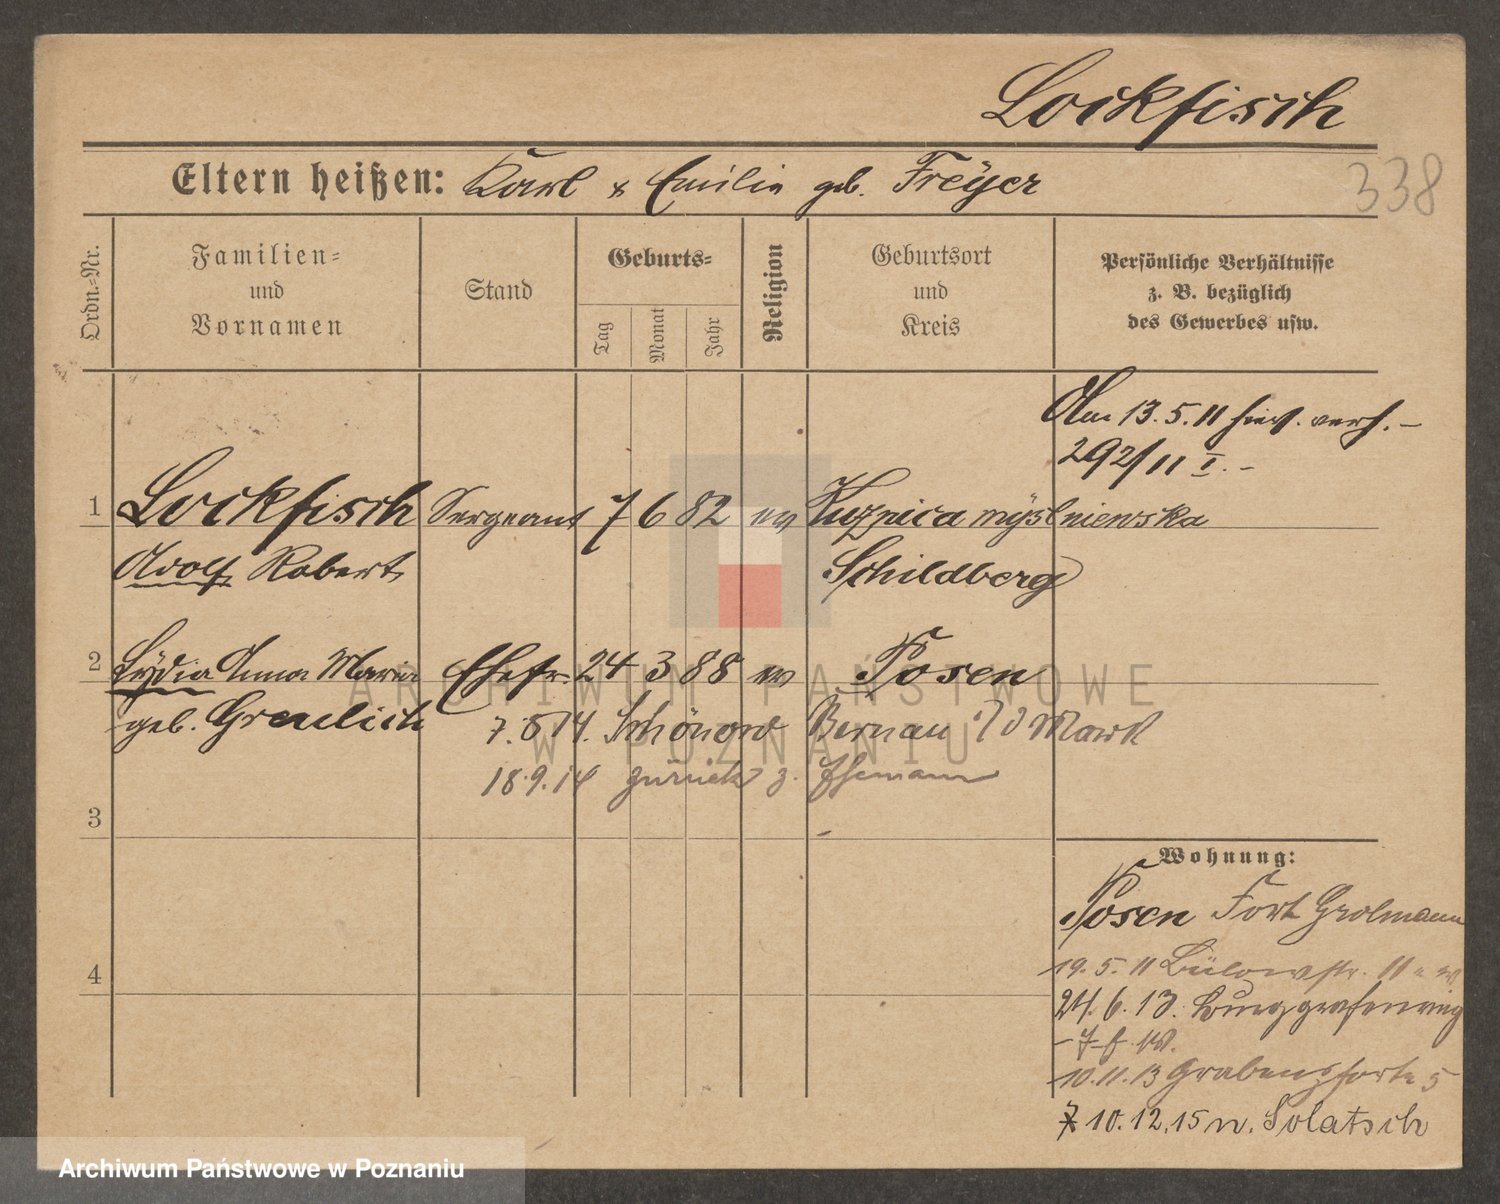 Lockfisch
Eltern heißen: Karl & Emilie geb. Freyer
338
Ordn.-Nr.
Familien-
und
Vornamen
Stand
Geburts-
Tag
Monat
Jahr
Religion
Geburtsort
und
Kreis
Persönliche Verhältnisse
z. B. bezüglich
des Gewerbes usw.
Am 13.5.11 hier verh. –
292/11 I. –
1 Lockfisch Sergeant 7 6 82 ev Kuznica myslniewska
Adolf Robert Schildberg
2 Lydia Anna Maria Ehefr. 24 3 88 ev Posen
geb. Greulich 7.8.14. Schönow Bernau Mark
18.9.14 zurück z. Ehemann
3
Wohnung:
Posen Fort Grolmann
4
19.5.11 Bülowstr. 11
24.6.13. Burggrafenring
10.11.13 Grabenpforte 5
10.12.15 n. Solatsch
ARCHIWUM PAŃSTWOWE
W POZNANIU
Archiwum Państwowe w Poznaniu